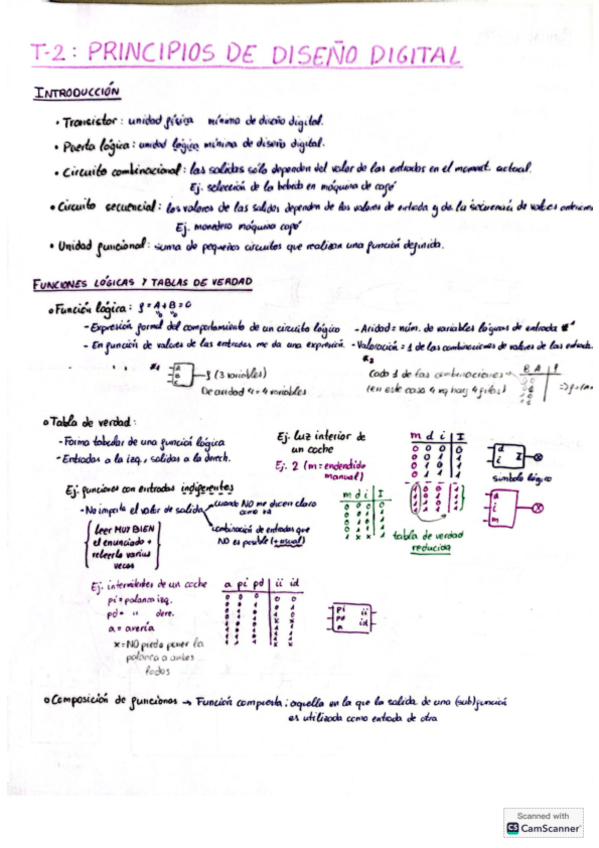 T-2: PRINCIPIOS DE DISEÑO DIGITAL
INTRODUCCIÓN
• Transistor: unidad física mínima de diseño digital.
• Puerta lógica: unidad lógica mínima de diseño digital.
• Circuito combinacional: las salidas sólo dependen del valor de las entradas en el moment. actual.
Ej. selección de la bebida en máquina de café
• Circuito secuencial: los valores de las salidas dependen de los valores de entrada y de la secuencia de valores
Ej. monedero máquina café
• Unidad funcional: suma de pequeños circuitos que realizan una función definida.
FUNCIONES LÓGICAS Y TABLAS DE VERDAD
• Función lógica: f = A + B = C
- Expresión formal del comportamiento de un circuito lógico - Aridad = núm. de variables lógicas de entrada
- En función de valores de las entradas me da una expresión. - Valoración = 1 de las combinaciones de valores de las entrada.
A
B
C
f (3 variables)
De aridad 4 = 4 variables
Cada 1 de las combinaciones
(en este caso 4 hay 4 filas)
B A f
• Tabla de verdad:
- Forma tabular de una función lógica
- Entradas a la izq., salidas a la derech.
Ej. luz interior de
un coche
Ej. 2 (m = encendido
manual)
m d i I
d
i I
símbolo lógico
m d i I
tabla de verdad
reducida
Ej. funciones con entradas indiferentes
- No importa el valor de salida
cuando NO me dicen claro
como va
combinación de entradas que
NO es posible (+ usual)
leer MUY BIEN
el enunciado +
releerlo varias
veces
Ej. intermitentes de un coche
pi = palanca izq.
pd = " dere.
a = avería
x = NO puedo poner la
palanca a ambos
lados
a pi pd ii id
pi ii
pd id
a
• Composición de funciones → Función compuesta: aquella en la que la salida de una (sub)función
es utilizada como entrada de otra
Scanned with
CS CamScanner